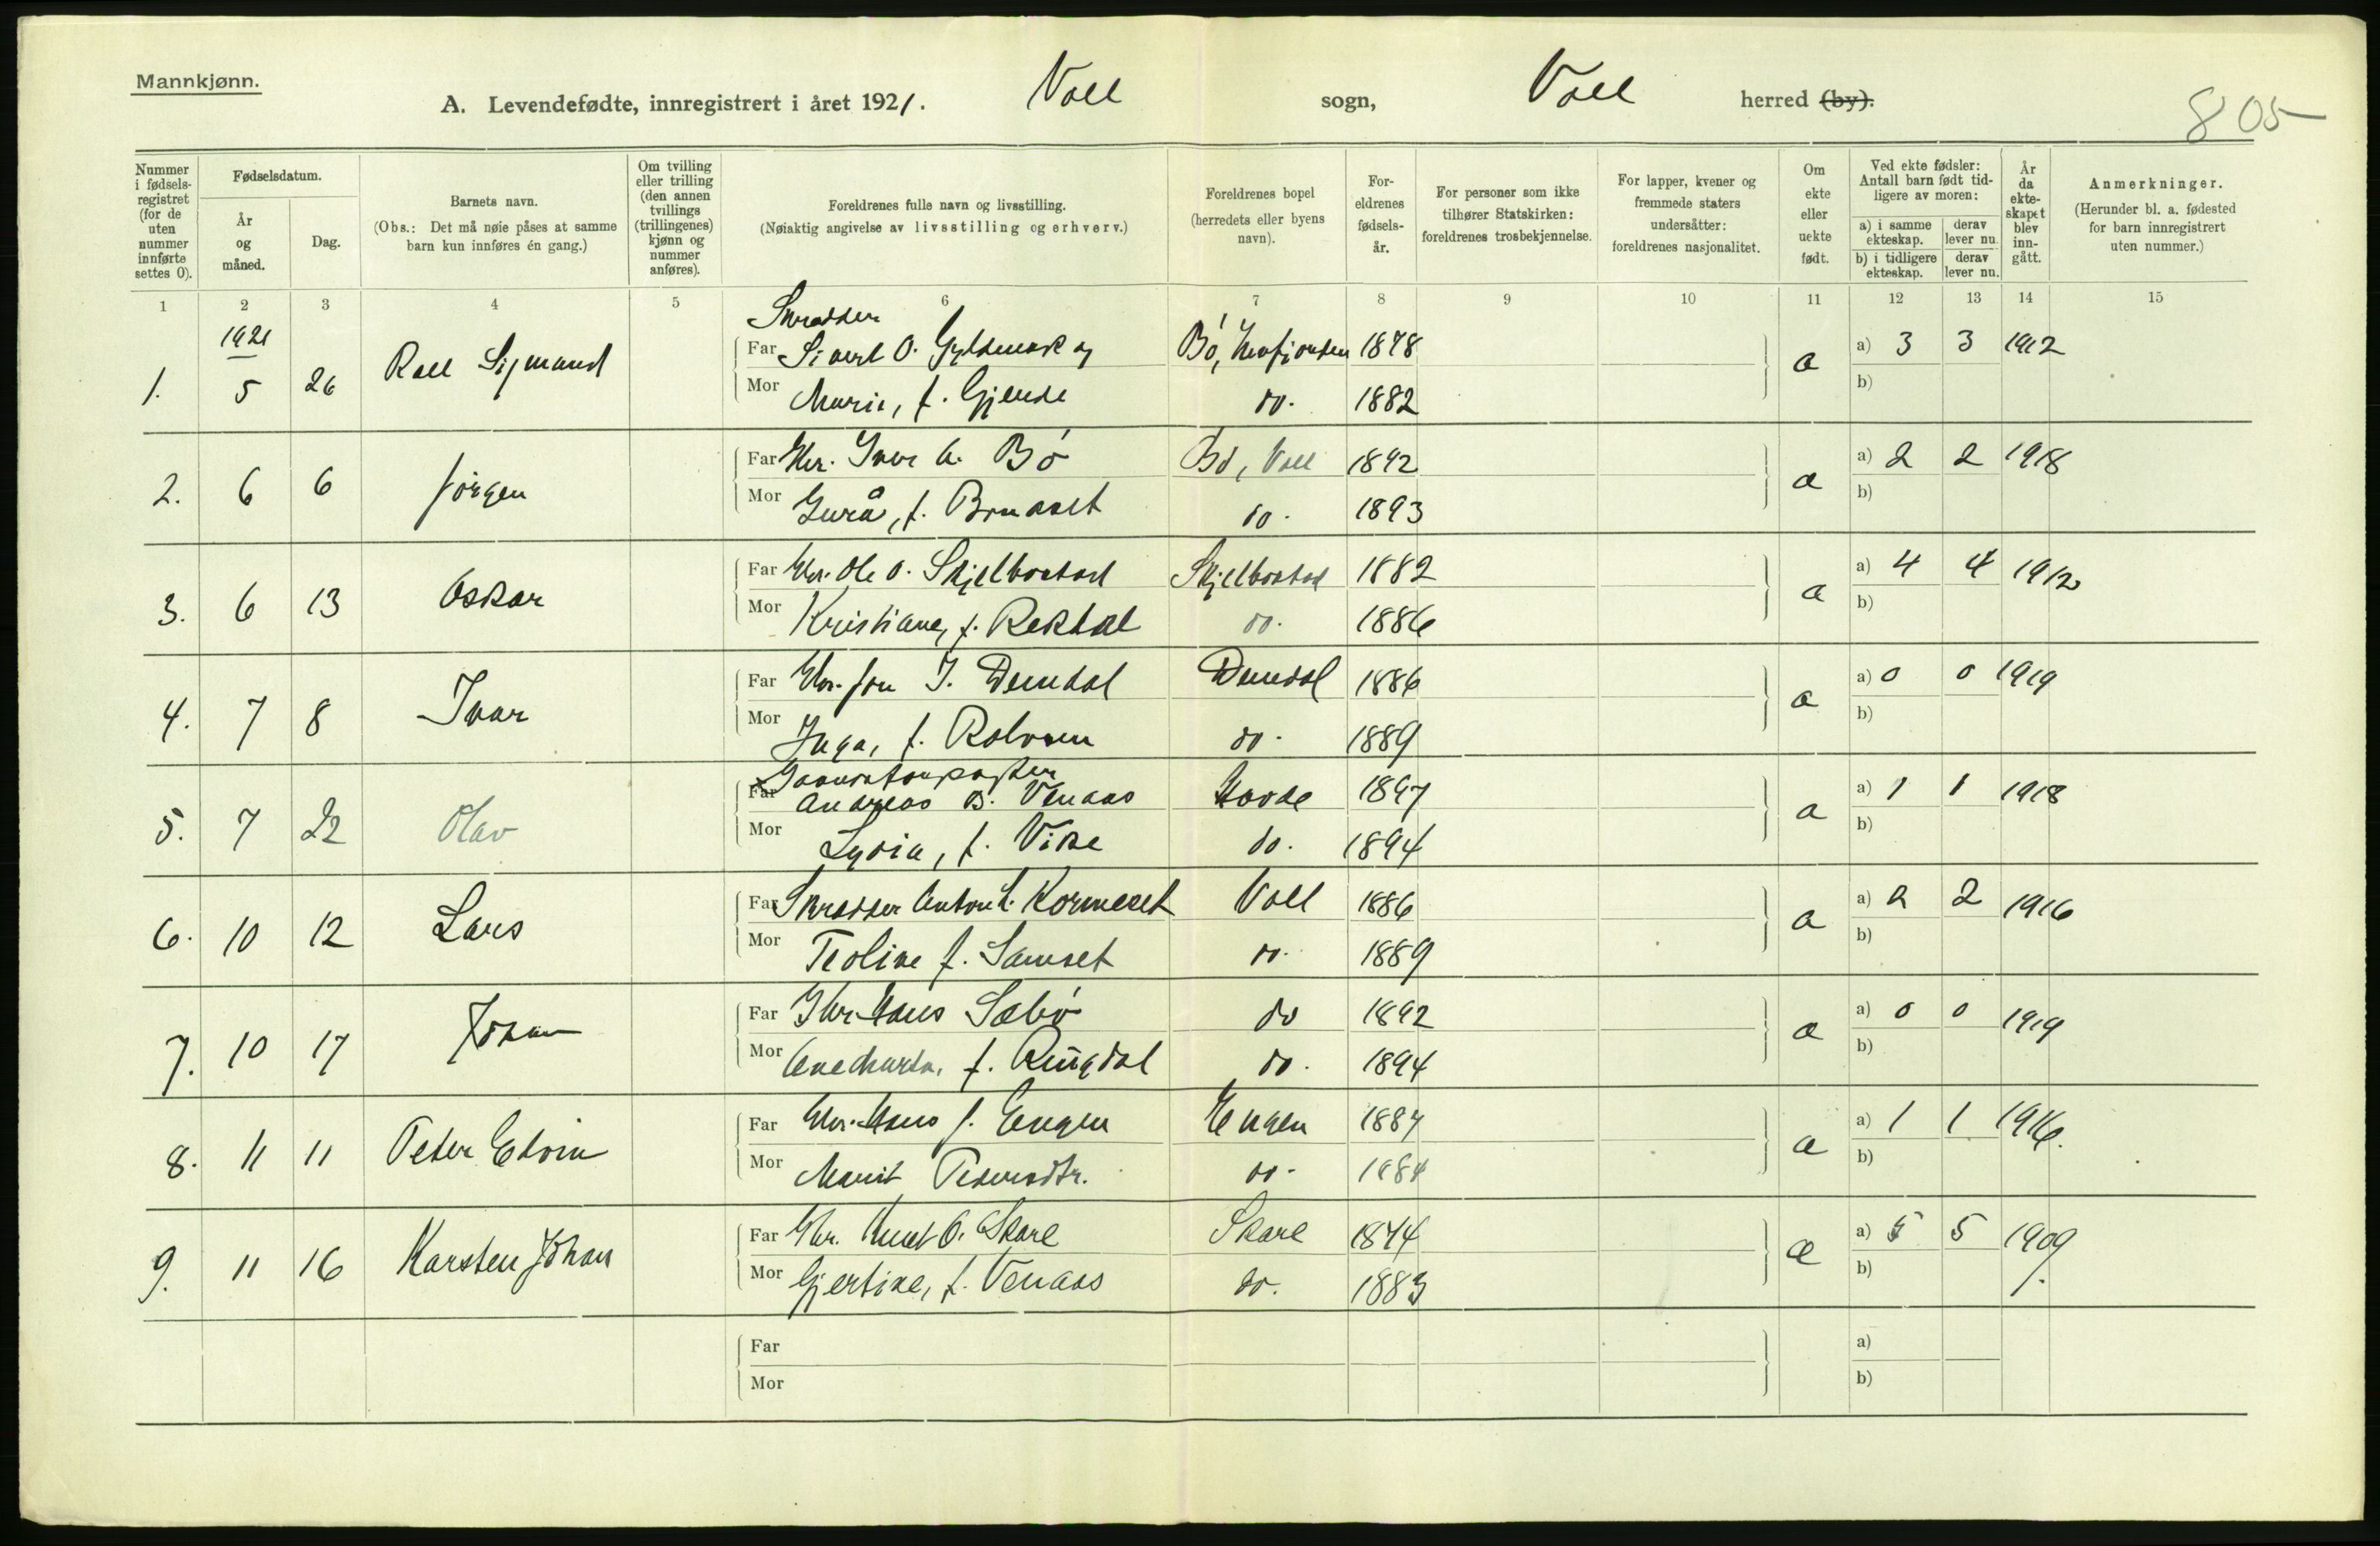 Mannkjønn.
A. Levendefødte, innregistrert i året 1921. Voll sogn, Voll herred (by).
805
Nummer i fødselsregistret (for de uten nummer innførte settes 0).
Fødselsdatum.
År og måned.
Dag.
Barnets navn.
(Obs.: Det må nøie påses at samme barn kun innføres én gang.)
Om tvilling eller trilling (den annen tvillings (trillingenes) kjønn og nummer anføres).
Foreldrenes fulle navn og livsstilling.
(Nøiaktig angivelse av livsstilling og erhverv.)
Foreldrenes bopel (herredets eller byens navn).
Foreldrenes fødselsår.
For personer som ikke tilhører Statskirken: foreldrenes trosbekjennelse.
For lapper, kvener og fremmede staters undersåtter: foreldrenes nasjonalitet.
Om ekte eller uekte født.
Ved ekte fødsler: Antall barn født tidligere av moren:
a) i samme ekteskap. derav lever nu.
b) i tidligere ekteskap. derav lever nu.
År da ekteskapet blev inngått.
Anmerkninger.
(Herunder bl. a. fødested for barn innregistrert uten nummer.)
1 2 3 4 5 6 7 8 9 10 11 12 13 14 15
1921
Skredder
1. 5 26 Sigmund Far Sivert O. Bö, 1878 a) 3 3 1912
Mor Marie, f. Gjende do. 1882 b)
2. 6 6 Jörgen Far Gbr. Iver A. Bö Bö, Voll 1892 a) 2 2 1918
Mor Gurå, f. Bruaset do. 1893 b)
3. 6 13 Oskar Far Gbr. Ole O. Skjelbostad Skjelbostad 1882 a) 4 4 1912
Mor Kristiane, f. Rekdal do. 1886 b)
4. 7 8 Ivar Far Gbr. Jon I. Devudal 1886 a) 0 0 1919
Mor Inga, f. do. 1889 b)
5. 7 22 Olav Far Andreas B. Venaas 1897 a) 1 1 1918
Mor Lydia, f. Vike do. 1894 b)
6. 10 12 Lars Far Skredder Anton L. Kormeset Voll 1886 a) 2 2 1916
Mor Teoline f. Samset do. 1889 b)
7. 10 17 Johan Far Gbr. Hans Sæbö do 1892 a) 0 0 1919
Mor Ane Marta, f. Ringdal do. 1894 b)
8. 11 11 Peter Edvin Far Gbr. Hans J. Engen Engen 1887 a) 1 1 1916.
Mor Marit Pedersdtr. do. 1884 b)
9. 11 16 Karsten Johan Far Gbr. Knut O. Skare Skare 1874 a) 5 5 1909
Mor Gjertine, f. Venaas do. 1883 b)
Far a)
Mor b)